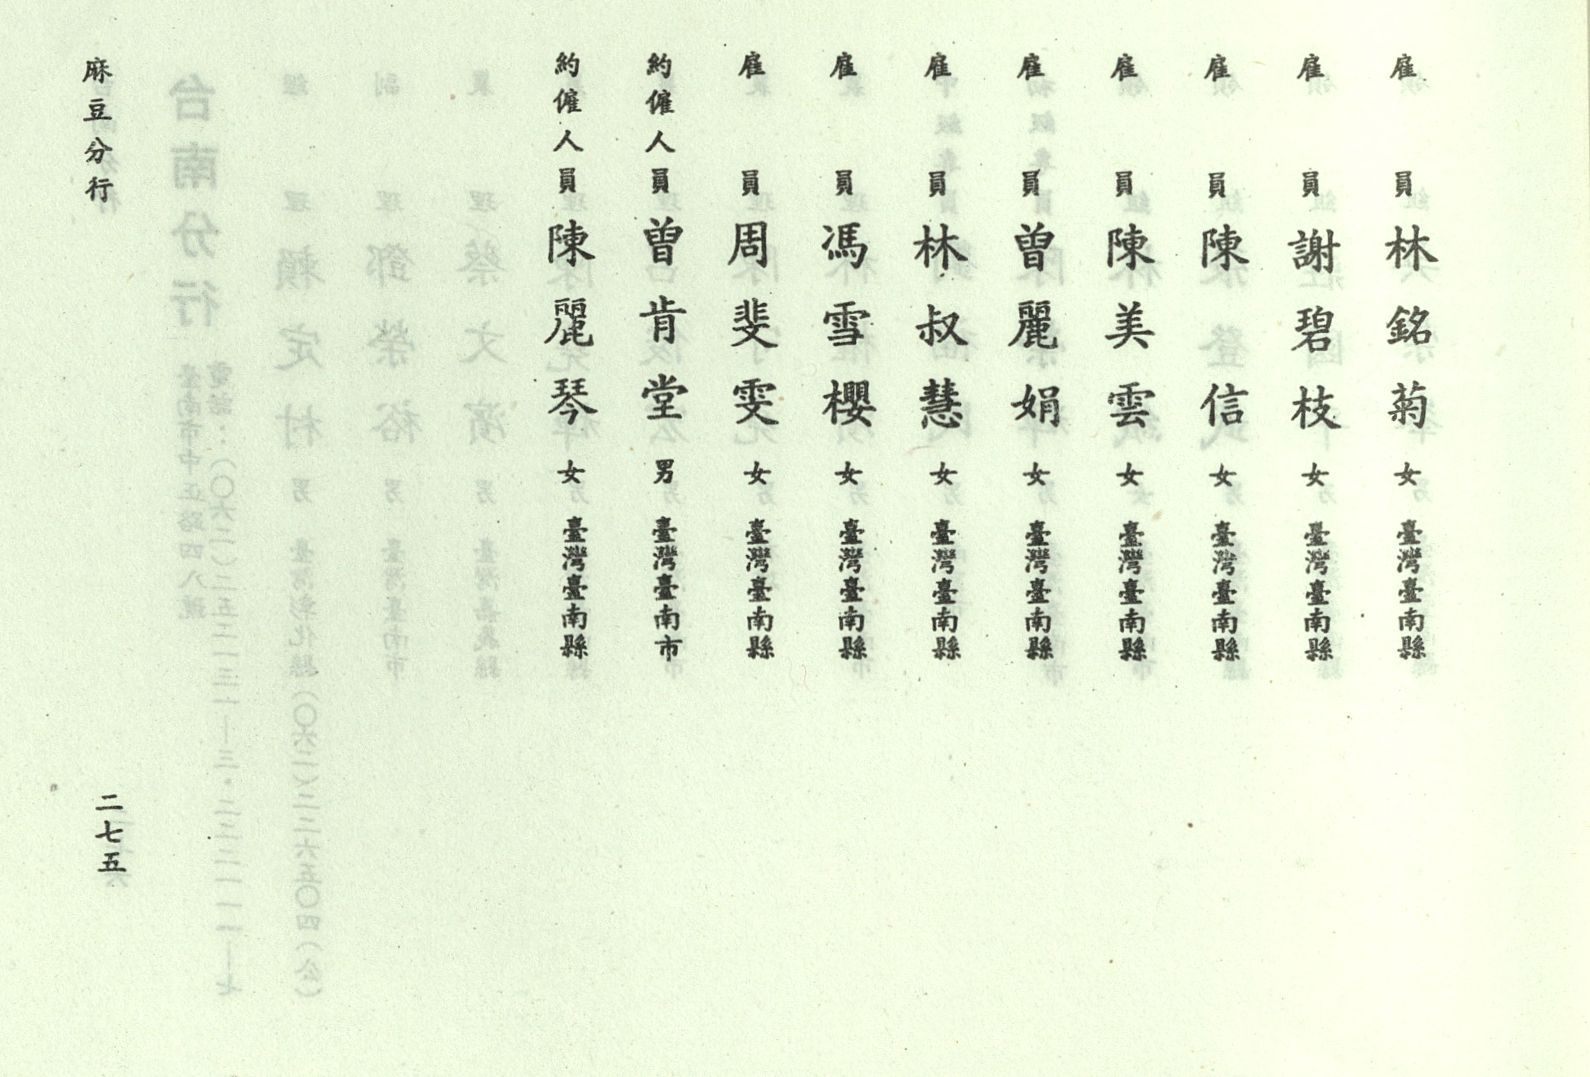 雇員林銘菊女臺灣臺南縣
雇員謝碧枝女臺灣臺南縣
雇員陳信女臺灣臺南縣
雇員陳美雲女臺灣臺南縣
雇員曾麗娟女臺灣臺南縣
雇員林叔慧女臺灣臺南縣
雇員馮雪櫻女臺灣臺南縣
雇員周斐雯女臺灣臺南縣
約僱人員曾肯堂男臺灣臺南市
約僱人員陳麗琴女臺灣臺南縣
麻豆分行
二七五